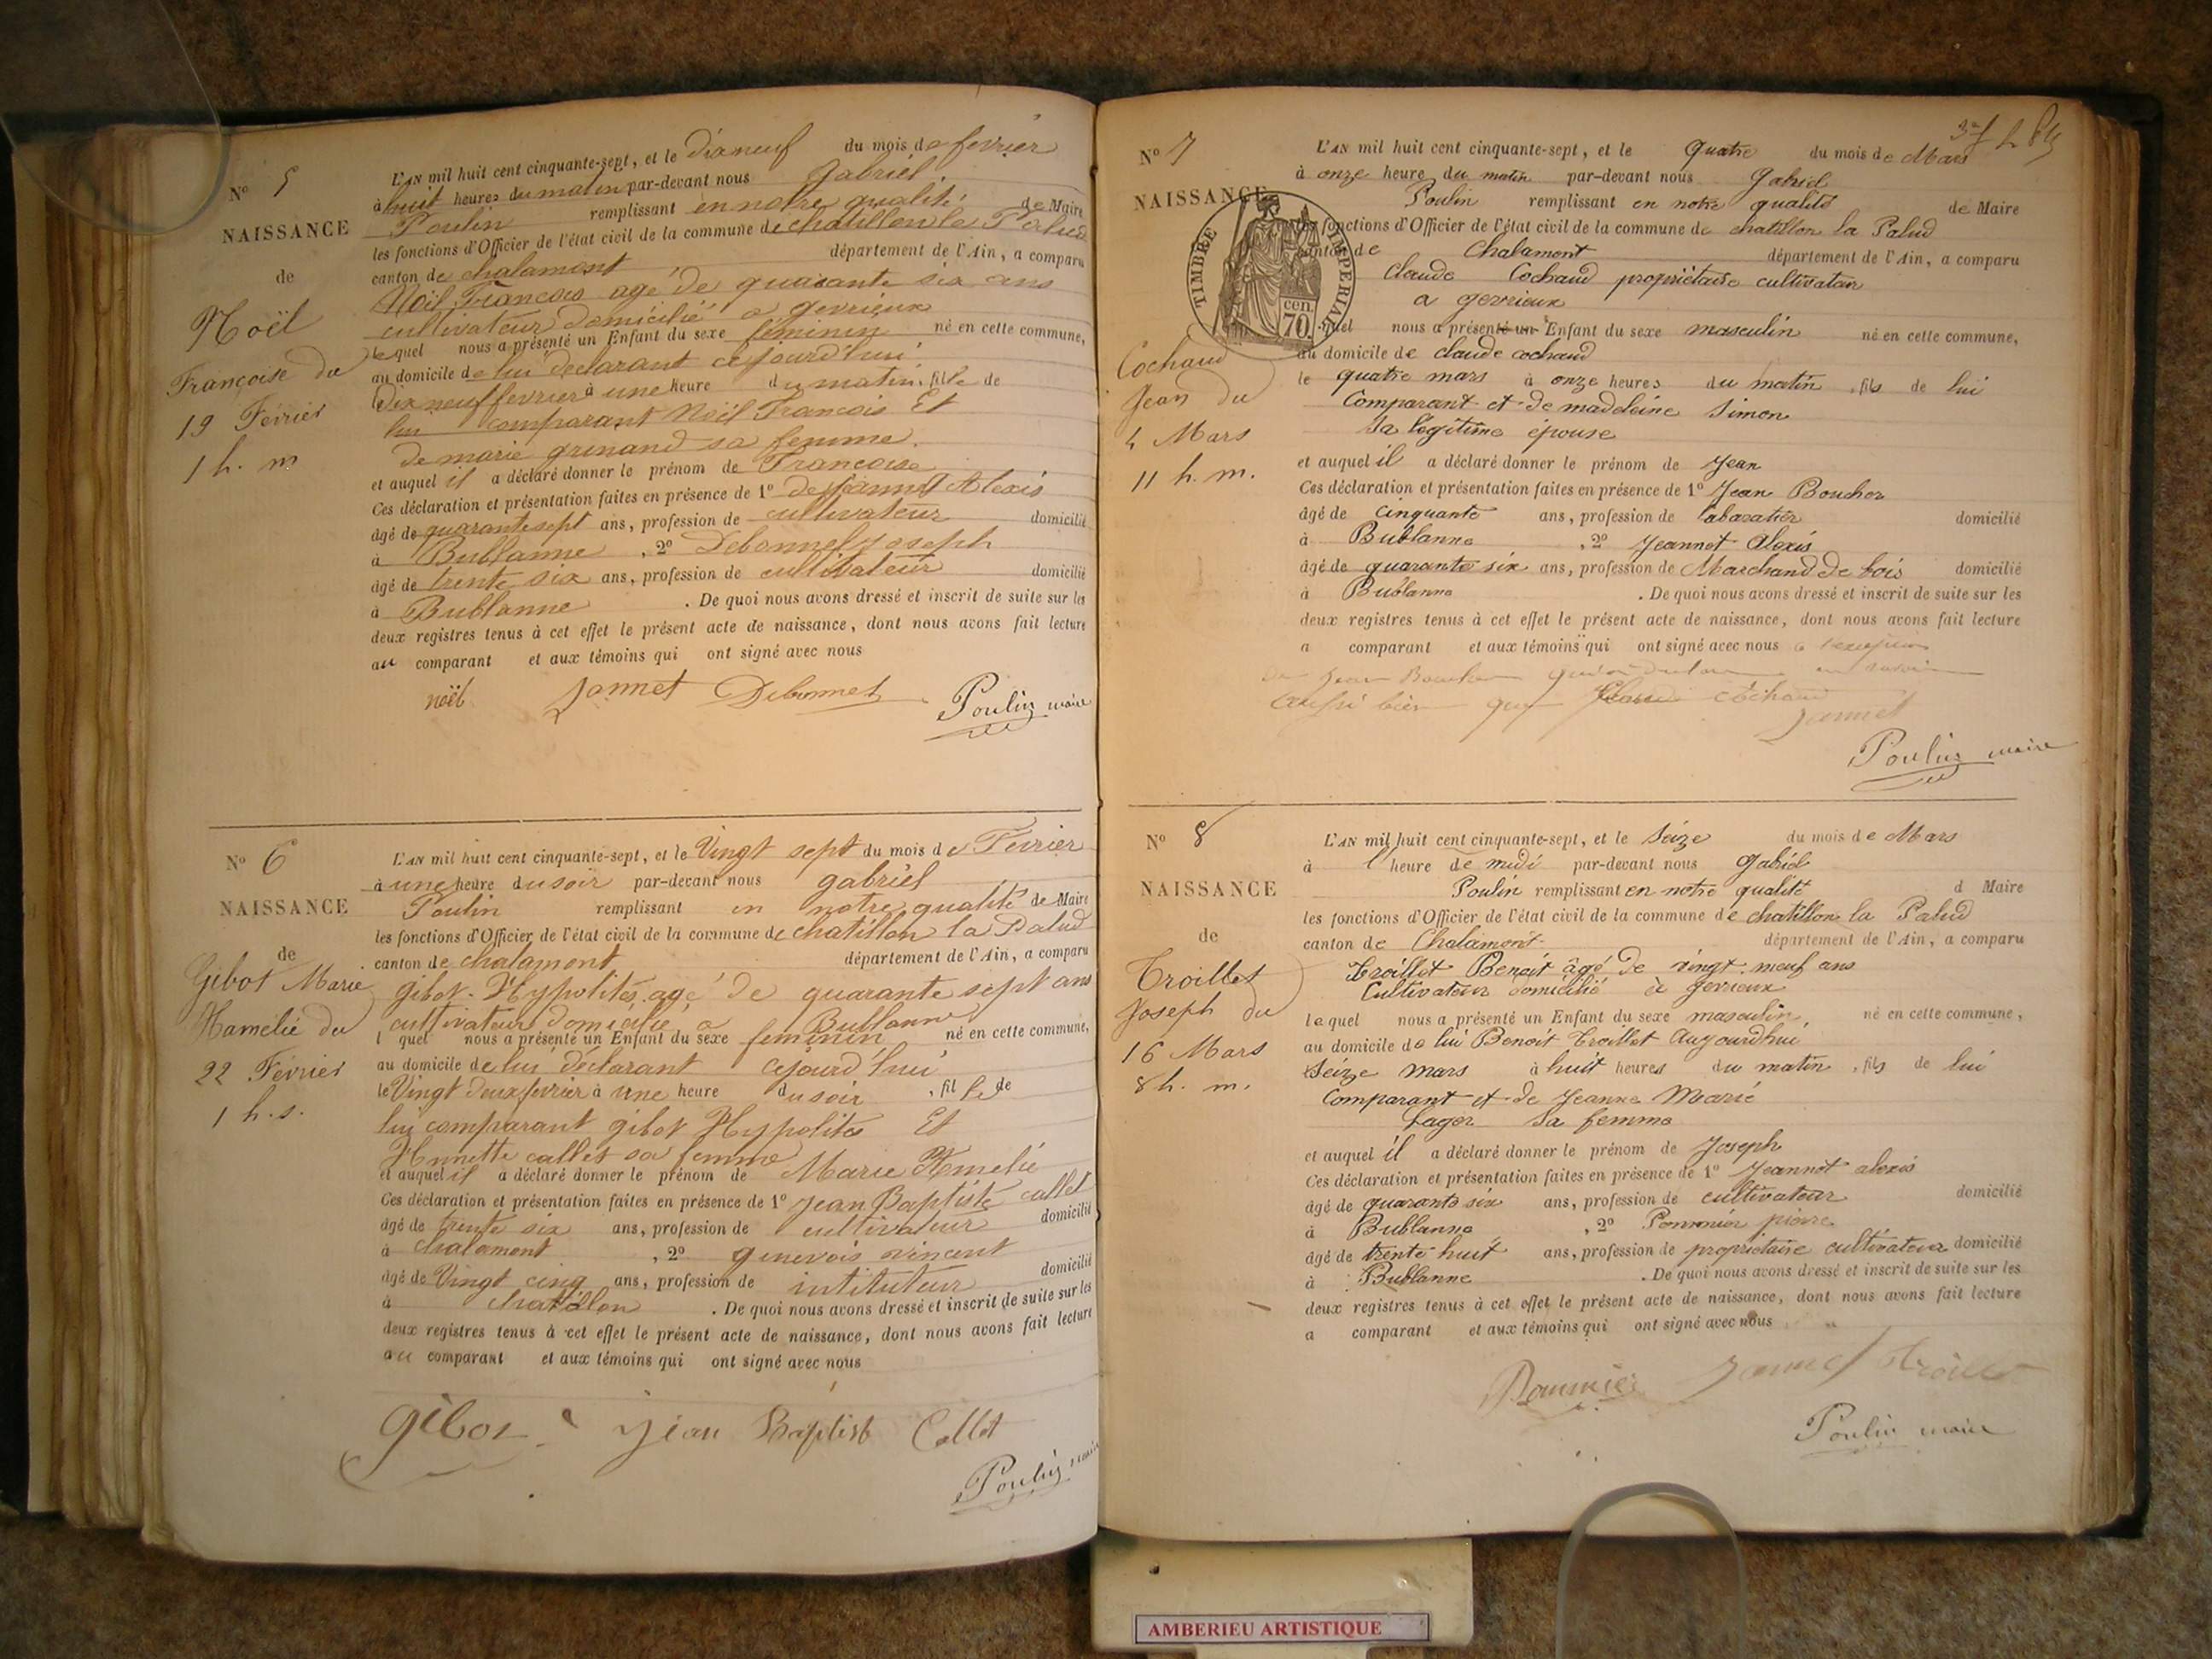 N° 5
NAISSANCE
de
Noël
Françoise du
19 Février
1 h. m
L'AN mil huit cent cinquante-sept, et le dixneuf du mois de fevrier
à huit heures du matin par-devant nous Gabriel
Poulin remplissant en notre qualité de Maire
les fonctions d'Officier de l'état civil de la commune de chatillon la Palud
canton de chalamont département de l'Ain, a comparu
Noël François agé de quarante six ans
cultivateur domicilié a gevrieux
lequel nous a présenté un Enfant du sexe féminin né en cette commune,
au domicile de lui déclarant cejourd'hui
dix neuf fevrier à une heure du matin, fille de
lui comparant Noël François Et
de marie grenand sa femme.
et auquel il a déclaré donner le prénom de Françoise
Ces déclaration et présentation faites en présence de 1° Alexis
âgé de quarante sept ans, profession de cultivateur domicilié
à Bublanne, 2° Debonnet joseph
âgé de trente six ans, profession de cultivateur domicilié
à Bublanne. De quoi nous avons dressé et inscrit de suite sur les
deux registres tenus à cet effet le présent acte de naissance, dont nous avons fait lecture
au comparant et aux témoins qui ont signé avec nous
noël Jannet Debonnet Poulin maire
N° 6
NAISSANCE
de
Gibot Marie
Hamélie du
22 Février
1 h. s.
L'AN mil huit cent cinquante-sept, et le Vingt sept du mois de Fevrier
à une heure du soir par-devant nous gabriel
Poulin remplissant en notre qualité de Maire
les fonctions d'Officier de l'état civil de la commune de chatillon la Palud
canton de chalamont département de l'Ain, a comparu
gibot Hypolites agé de quarante sept ans
cultivateur domicilié a Bublanne
l quel nous a présenté un Enfant du sexe feminin né en cette commune,
au domicile de lui déclarant cejourd'hui
le Vingt deux fevrier à une heure du soir, fille de
lui comparant gibot Hypolites Et
callet sa femme
et auquel il a déclaré donner le prénom de Marie Hamelie
Ces déclaration et présentation faites en présence de 1° jean Baptiste callet
âgé de trente six ans, profession de cultivateur domicilié
à chalamont, 2° genevois vincent
âgé de Vingt cinq ans, profession de intituteur domicilié
à chatillon. De quoi nous avons dressé et inscrit de suite sur les
deux registres tenus à cet effet le présent acte de naissance, dont nous avons fait lecture
au comparant et aux témoins qui ont signé avec nous
gibot jean Baptist Collet
Poulin maire
N° 7
NAISSANCE
TIMBRE IMPERIAL
cen 70.
Cochaud
Jean du
4 Mars
11 h. m.
L'AN mil huit cent cinquante-sept, et le quatre du mois de Mars
à onze heure du matin par-devant nous Gabriel
Poulin remplissant en notre qualité de Maire
fonctions d'Officier de l'état civil de la commune de chatillon la Palud
canton de Chalamont département de l'Ain, a comparu
Claude Cochaud propriétaire cultivateur
a gevrieux
quel nous a présenté un Enfant du sexe masculin né en cette commune,
au domicile de claude cochaud
le quatre mars à onze heures du matin, fils de lui
Comparant et de madeleine Simon
Sa legitime épouse
et auquel il a déclaré donner le prénom de Jean
Ces déclaration et présentation faites en présence de 1° Jean Boucher
âgé de cinquante ans, profession de domicilié
à Bublanne, 2° Jeannet Alexis
âgé de quarante six ans, profession de Marchand de bois domicilié
à Bublanne. De quoi nous avons dressé et inscrit de suite sur les
deux registres tenus à cet effet le présent acte de naissance, dont nous avons fait lecture
a comparant et aux témoins qui ont signé avec nous a l'exception
de Jean Boucher savoir
aussi bien que Claude Cochaud
Jannet
Poulin maire
N° 8
NAISSANCE
de
Troillet
Joseph du
16 Mars
8 h. m.
L'AN mil huit cent cinquante-sept, et le Seize du mois de Mars
à l'heure de midi par-devant nous Gabriel
Poulin remplissant en notre qualité d Maire
les fonctions d'Officier de l'état civil de la commune de chatillon la Palud
canton de Chalamont département de l'Ain, a comparu
Troillet Benoit âgé de vingt neuf ans
Cultivateur domicilié à Gevrieux
lequel nous a présenté un Enfant du sexe masculin, né en cette commune,
au domicile de lui Benoit Troillet Aujourdhui
Seize mars à huit heures du matin, fils de lui
Comparant et de Jeanne Marie
Lager Sa femme
et auquel il a déclaré donner le prénom de Joseph
Ces déclaration et présentation faites en présence de 1° Jeannet alexis
âgé de quarante six ans, profession de cultivateur domicilié
à Bublanne, 2° Pommier pierre
âgé de trente huit ans, profession de propriétaire cultivateur domicilié
à Bublanne. De quoi nous avons dressé et inscrit de suite sur les
deux registres tenus à cet effet le présent acte de naissance, dont nous avons fait lecture
a comparant et aux témoins qui ont signé avec nous
Pommier Jannet Troillet
Poulin maire
AMBERIEU ARTISTIQUE